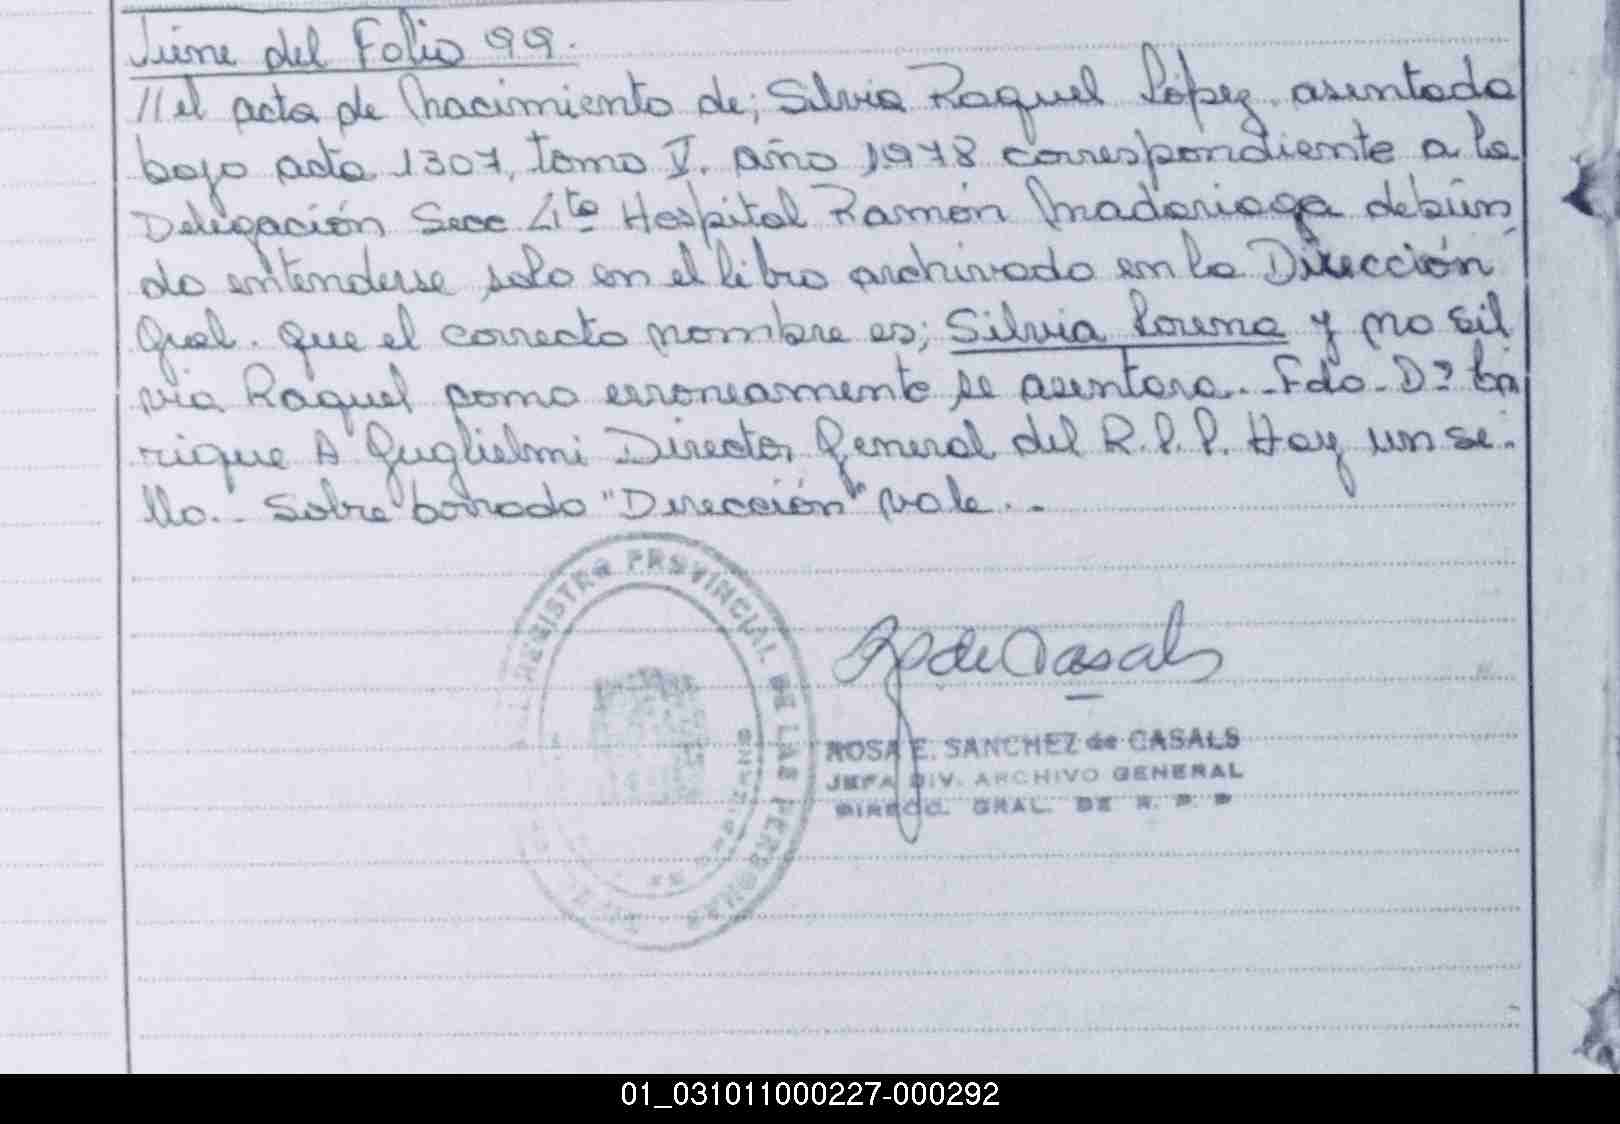 Viene del Folio 99.
// el acta de Nacimiento de; Silvia Raquel López, asentada
bajo acta 1307, tomo V. año 1978 correspondiente a la
Delegación Secc 4ta Hospital Ramón Madariaga debien
do entenderse solo en el libro archivado en la Dirección
Gral. que el correcto nombre es; Silvia Lorena y no Sil
via Raquel como erroneamente se asentara.. Fdo. Dn En
rique A Guglielmi Director General del R.P.P. Hay un se-
llo.. Sobre borrado "Dirección" vale..
REGISTRO PROVINCIAL DE LAS PERSONAS
MISIONES
R de Casals
ROSA E. SANCHEZ de CASALS
JEFA DIV. ARCHIVO GENERAL
DIRECC. GRAL. DE R. P. P
01_031011000227-000292